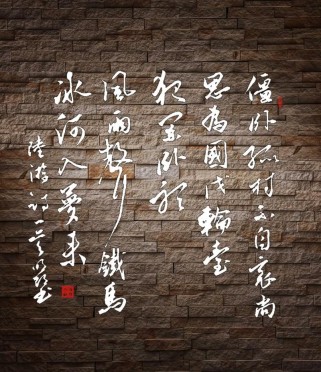 僵卧孤村不自哀尚
思為國戍輪臺
夜闌卧聽
風雨鐵馬
冰河入夢来
陸游詩一首